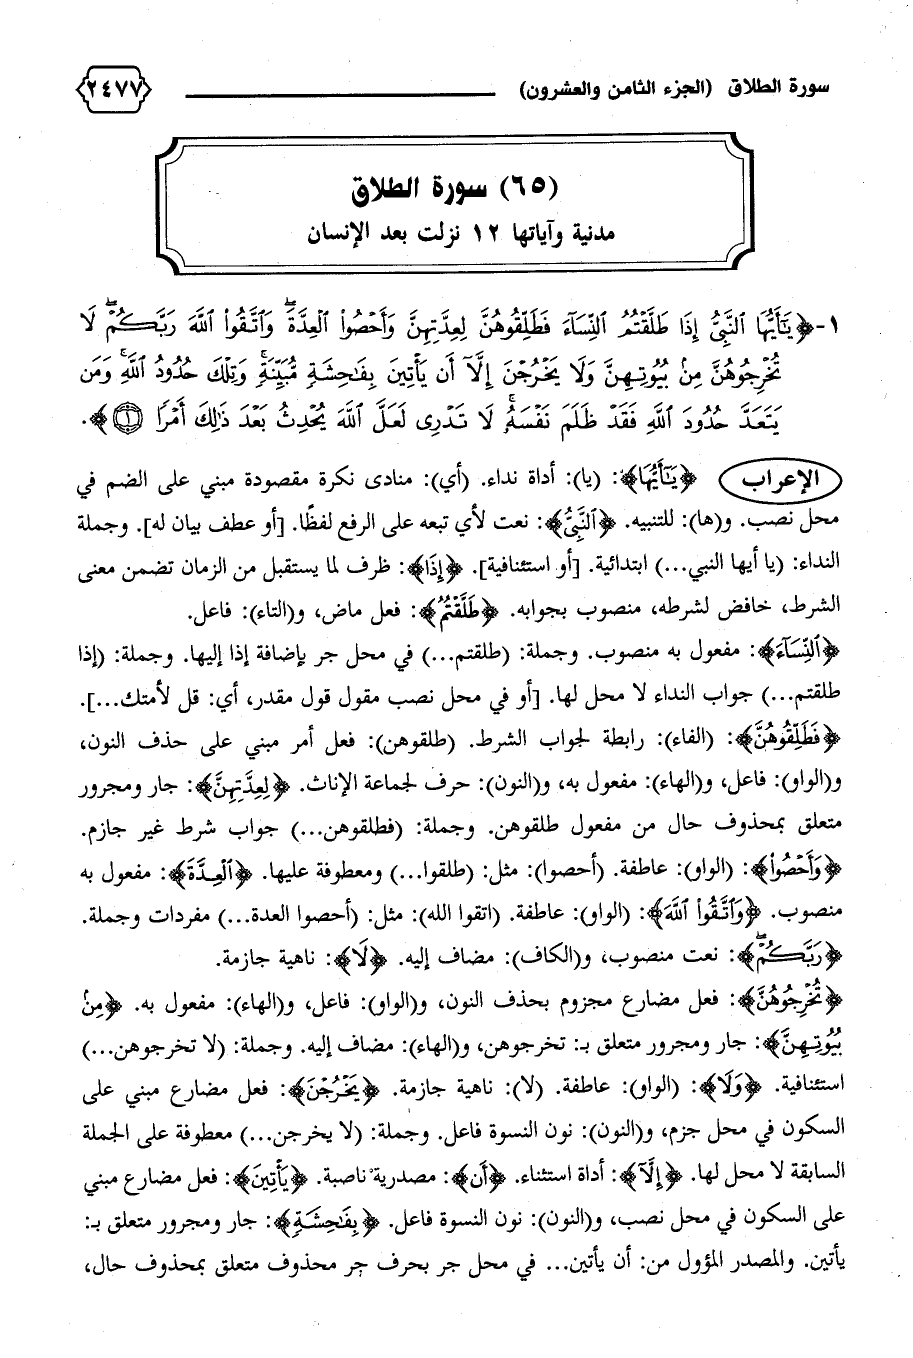 سورة الطلاق (الجزء الثامن والعشرون) ٢٤٧٧
(٦٥) سورة الطلاق
مدنية وآياتها ١٢ نزلت بعد الإنسان
١- ﴿يَٰٓأَيُّهَا ٱلنَّبِىُّ إِذَا طَلَّقْتُمُ ٱلنِّسَآءَ فَطَلِّقُوهُنَّ لِعِدَّتِهِنَّ وَأَحْصُوا۟ ٱلْعِدَّةَ ۖ وَٱتَّقُوا۟ ٱللَّهَ رَبَّكُمْ ۖ لَا
تُخْرِجُوهُنَّ مِنۢ بُيُوتِهِنَّ وَلَا يَخْرُجْنَ إِلَّآ أَن يَأْتِينَ بِفَٰحِشَةٍ مُّبَيِّنَةٍ ۚ وَتِلْكَ حُدُودُ ٱللَّهِ ۚ وَمَن
يَتَعَدَّ حُدُودَ ٱللَّهِ فَقَدْ ظَلَمَ نَفْسَهُۥ ۚ لَا تَدْرِى لَعَلَّ ٱللَّهَ يُحْدِثُ بَعْدَ ذَٰلِكَ أَمْرًا ١﴾.
الإعراب ﴿يَٰٓأَيُّهَا﴾: (يا): أداة نداء. (أي): منادى نكرة مقصودة مبني على الضم في
محل نصب. و(ها): للتنبيه. ﴿ٱلنَّبِىُّ﴾: نعت لأي تبعه على الرفع لفظًا. [أو عطف بيان له]. وجملة
النداء: (يا أيها النبي...) ابتدائية. [أو استئنافية]. ﴿إِذَا﴾: ظرف لما يستقبل من الزمان تضمن معنى
الشرط، خافض لشرطه، منصوب بجوابه. ﴿طَلَّقْتُمُ﴾: فعل ماض، و(التاء): فاعل.
﴿ٱلنِّسَآءَ﴾: مفعول به منصوب. وجملة: (طلقتم...) في محل جر بإضافة إذا إليها. وجملة: (إذا
طلقتم...) جواب النداء لا محل لها. [أو في محل نصب مقول قول مقدر، أي: قل لأمتك...].
﴿فَطَلِّقُوهُنَّ﴾: (الفاء): رابطة لجواب الشرط. (طلقوهن): فعل أمر مبني على حذف النون،
و(الواو): فاعل، و(الهاء): مفعول به، و(النون): حرف لجماعة الإناث. ﴿لِعِدَّتِهِنَّ﴾: جار ومجرور
متعلق بمحذوف حال من مفعول طلقوهن. وجملة: (فطلقوهن...) جواب شرط غير جازم.
﴿وَأَحْصُوا۟﴾: (الواو): عاطفة. (أحصوا): مثل: (طلقوا...) ومعطوفة عليها. ﴿ٱلْعِدَّةَ﴾: مفعول به
منصوب. ﴿وَٱتَّقُوا۟ ٱللَّهَ﴾: (الواو): عاطفة. (اتقوا الله): مثل: (أحصوا العدة...) مفردات وجملة.
﴿رَبَّكُمْ ۖ﴾: نعت منصوب، و(الكاف): مضاف إليه. ﴿لَا﴾: ناهية جازمة.
﴿تُخْرِجُوهُنَّ﴾: فعل مضارع مجزوم بحذف النون، و(الواو): فاعل، و(الهاء): مفعول به. ﴿مِنۢ
بُيُوتِهِنَّ﴾: جار ومجرور متعلق بـ: تخرجوهن، و(الهاء): مضاف إليه. وجملة: (لا تخرجوهن...)
استئنافية. ﴿وَلَا﴾: (الواو): عاطفة. (لا): ناهية جازمة. ﴿يَخْرُجْنَ﴾: فعل مضارع مبني على
السكون في محل جزم، و(النون): نون النسوة فاعل. وجملة: (لا يخرجن...) معطوفة على الجملة
السابقة لا محل لها. ﴿إِلَّآ﴾: أداة استثناء. ﴿أَن﴾: مصدرية ناصبة. ﴿يَأْتِينَ﴾: فعل مضارع مبني
على السكون في محل نصب، و(النون): نون النسوة فاعل. ﴿بِفَٰحِشَةٍ﴾: جار ومجرور متعلق بـ:
يأتين. والمصدر المؤول من: أن يأتين... في محل جر بحرف جر محذوف متعلق بمحذوف حال،